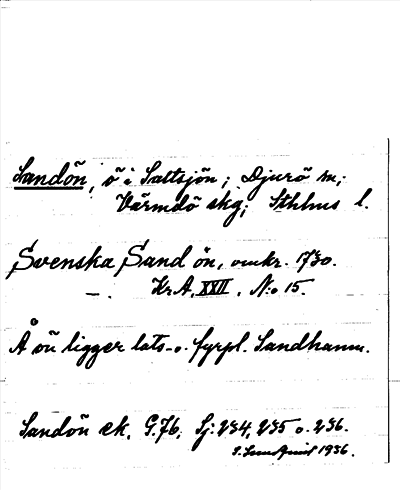 Sandön, ö i Saltsjön; Djurö sn;
Värmdö skg; Sthlms l.
Svenska Sandön, omkr. 1730.
—. Kr.A. XXII. N:o 15.
Å ön ligger lots- o. fyrpl. Sandhamn.
Sandön ek. G.76; Sj: 234, 235 o. 236.
1936.